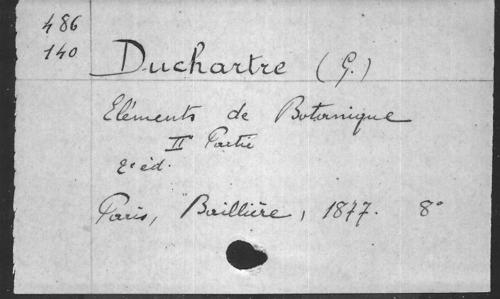 486
140
Duchartre (G.)
Eléments de Botanique
II Partie
2e éd.
Paris, Baillière, 1877. 8°